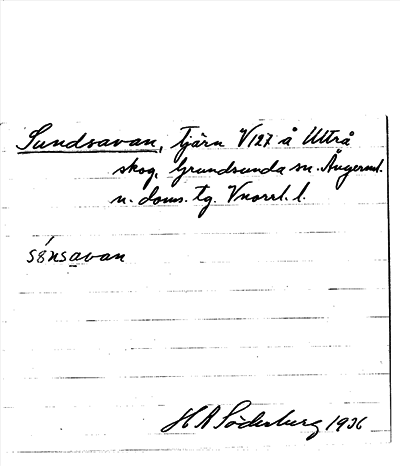 Sundsavan, tjärn V127 å Utträ
skog, Grundsunda sn. Ångerml.
n. doms. tg. Vnorrl. l.
sɵ́nsavan
H A Söderberg 1936